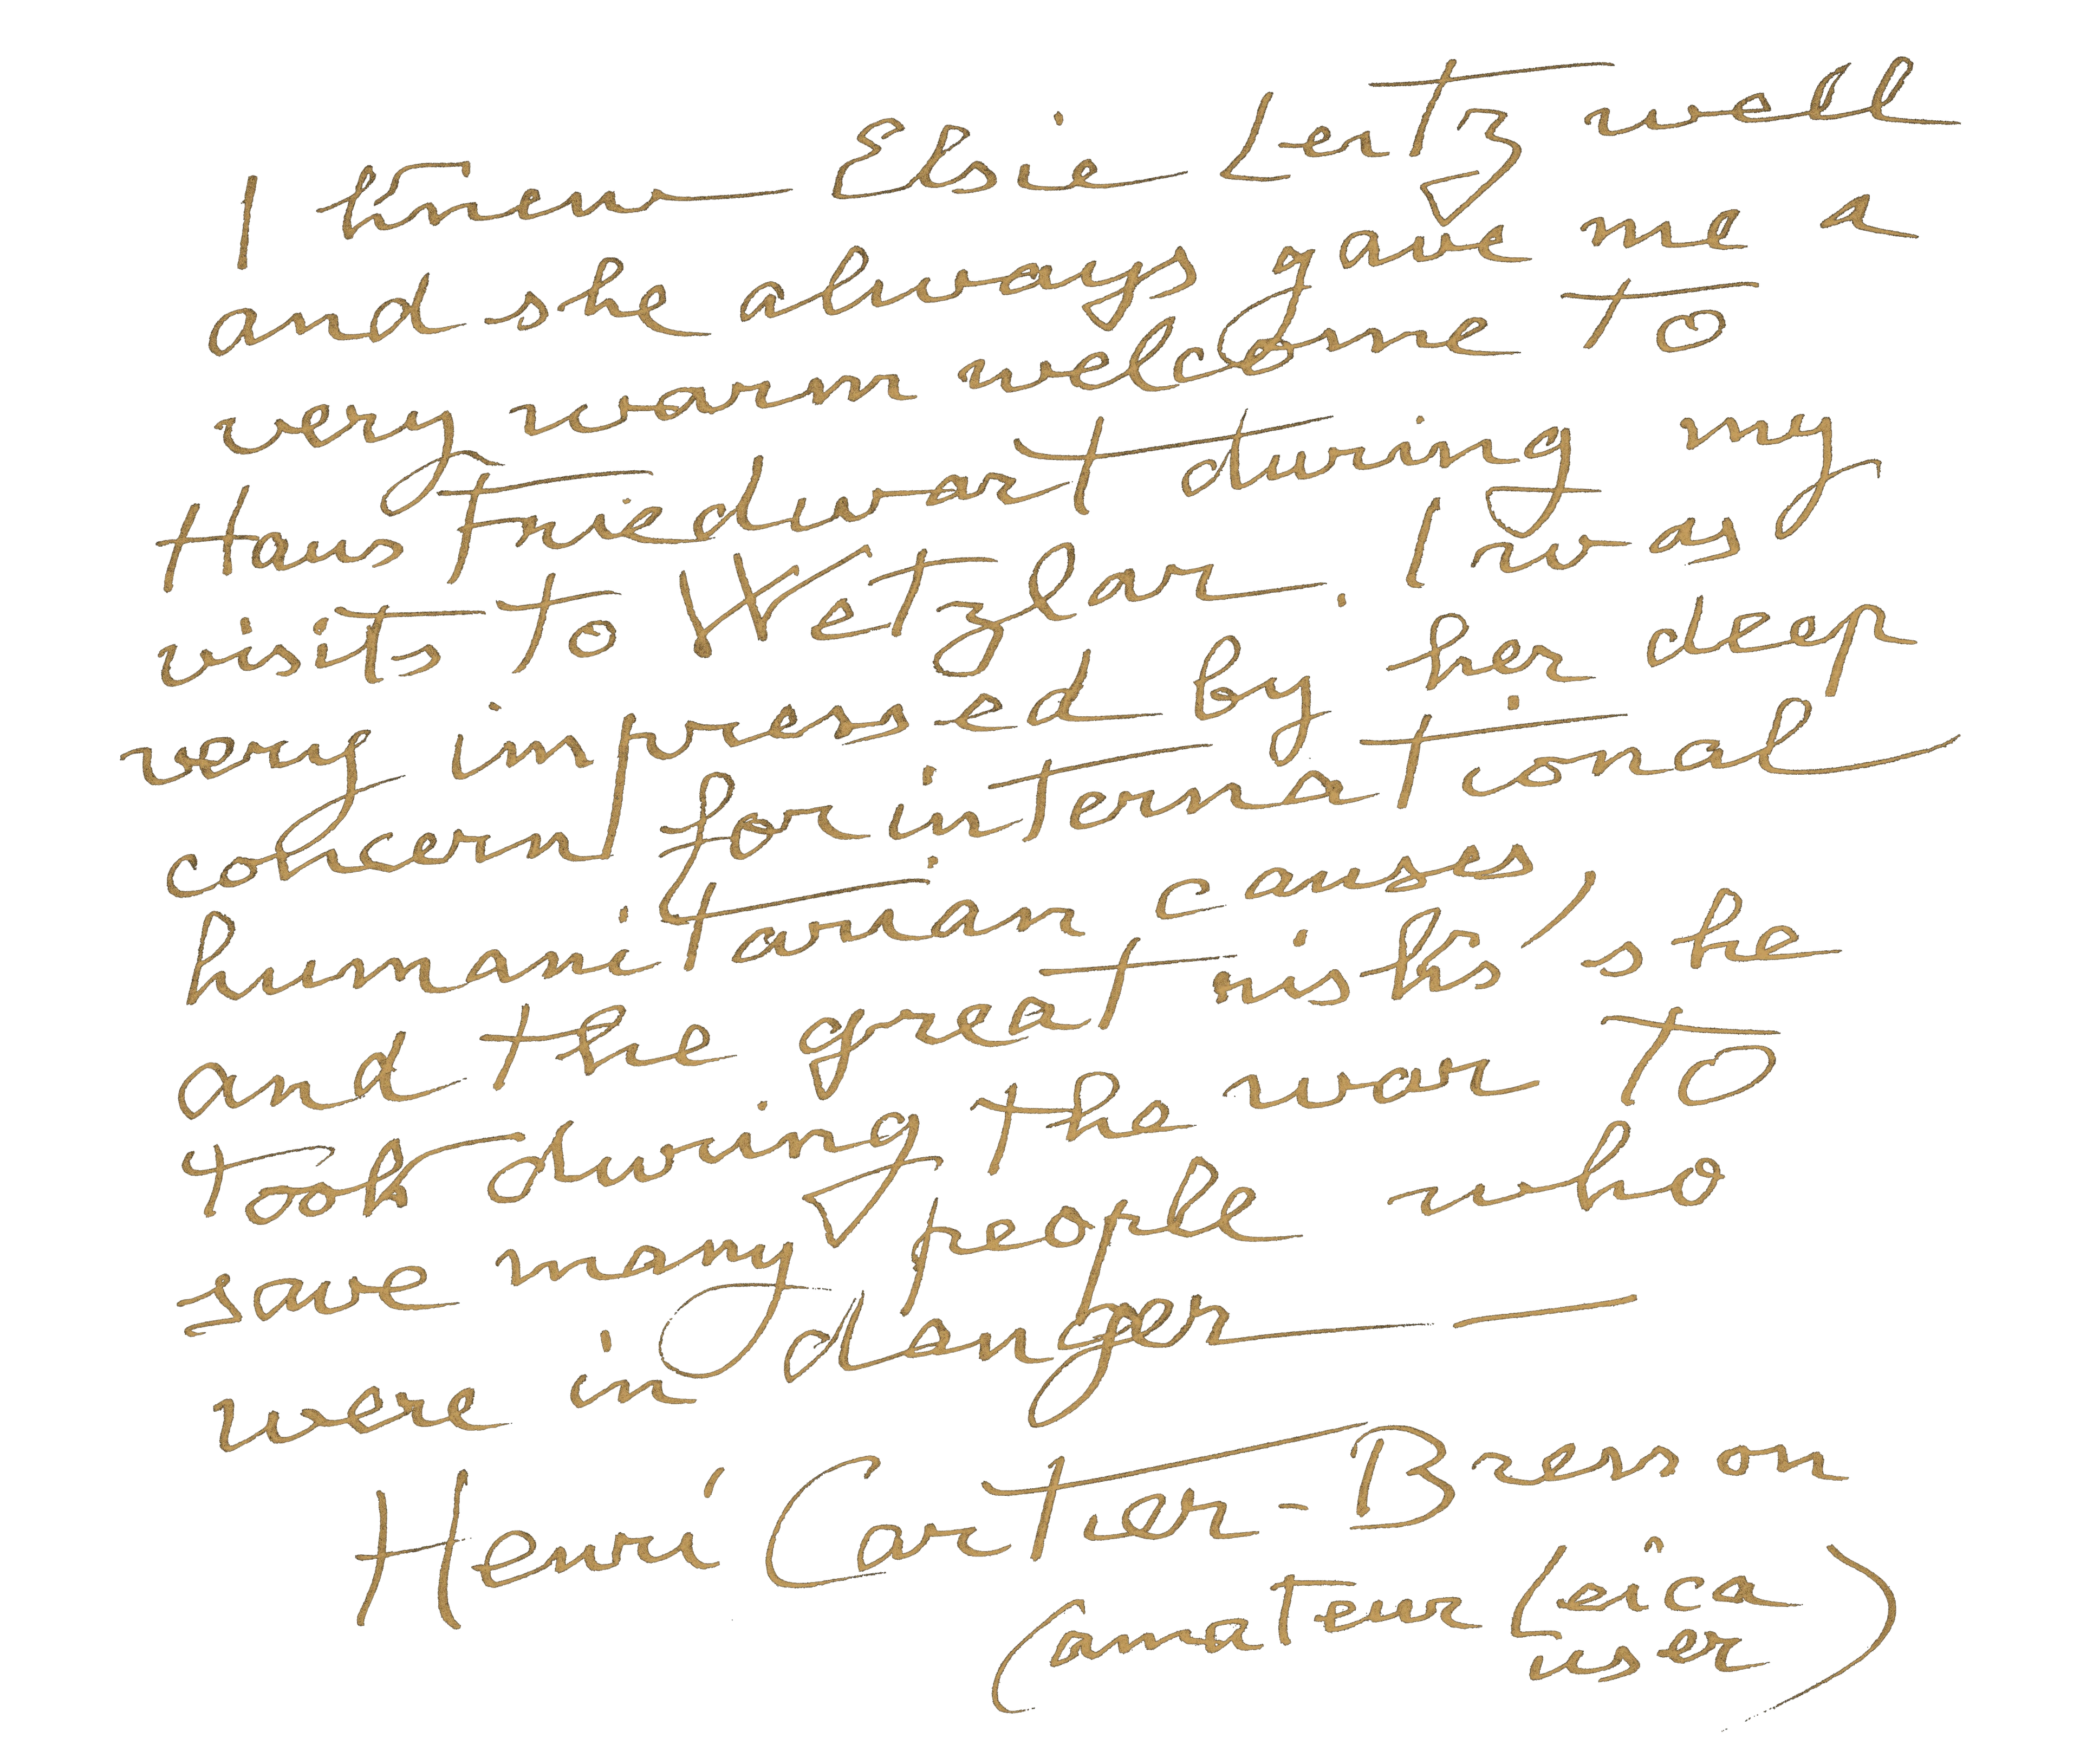 I knew Elsie Leitz well
and she always gave me a
very warm welcome to
Haus Friedwart during my
visits to Wetzlar. I was
very impressed by her deep
concern for international
humanitarian causes,
and the great risks she
took during the war to
save many people who
were in danger —
Henri Cartier-Bresson
(amateur Leica
user)